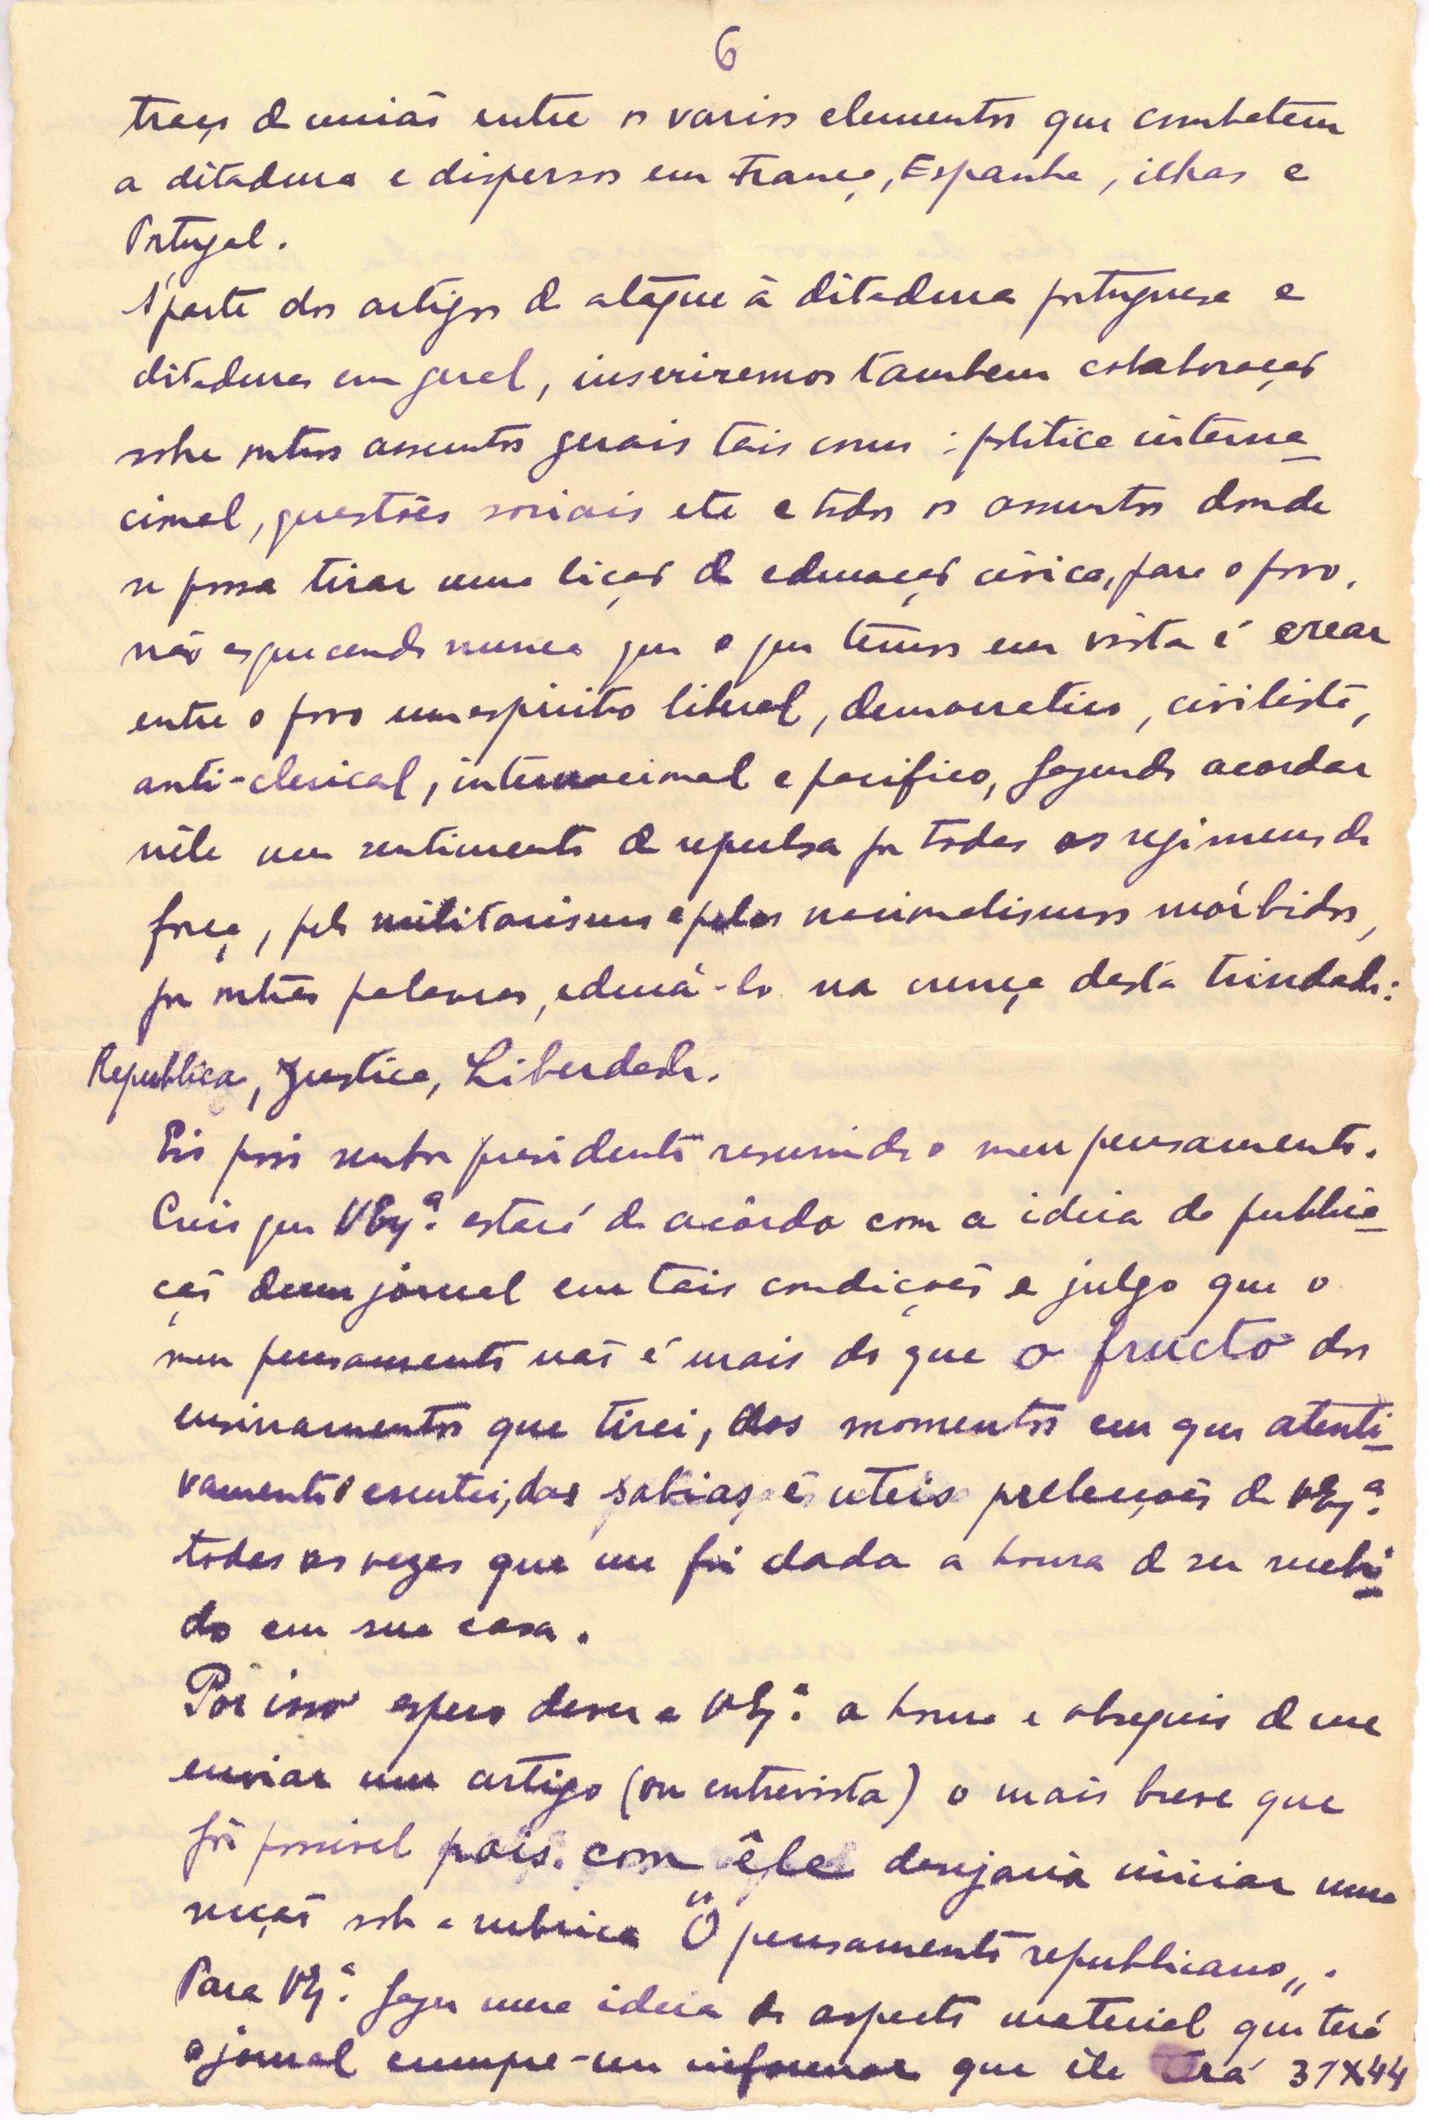 6
traço de união entre os varios elementos que combatem
a ditadura e dispersos em França, Espanha, ilhas e
Portugal.
Áparte dos artigos de ataque à ditadura portuguesa e
ditaduras em geral, inseriremos tambem colaboração
sobre outros assuntos gerais tais como : politica interna-
cional, questões sociais etc e todos os assuntos donde
se possa tirar uma lição de educação civica, para o povo,
não esquecendo nunca que o que temos em vista é crear
entre o povo um espirito liberal, democratico, civilista,
anti-clerical, internacional e pacifico, fazendo acordar
nêle um sentimento de repulsa por todos os regimens de
força, pelo militarismo e pelos nacionalismos mórbidos,
por outras palavras, educá-lo na crença desta trindade:
Republica, Justiça, Liberdade.
Eis pois senhor presidente resumindo o meu pensamento.
Creio que VExª. estará de acôrdo com a ideia da publica-
ção dum jornal em tais condições e julgo que o
meu pensamento não é mais do que o fructo dos
ensinamentos que tirei, dos momentos em que atenti-
vamente escutei, das sabias e uteis prelenções de VExª.
todas as vezes que me foi dada a honra de ser recebi-
do em sua casa.
Por isso espero dever a VExª. a honra e obsequio de me
enviar um artigo (ou entrevista) o mais breve que
fôr possivel pois. com êle desejaria iniciar uma
secção sob a rubrica "O pensamento republicano„.
Para VExª. fazer uma ideia do aspecto material que terá
o jornal cumpre-me informar que êle terá 31X44